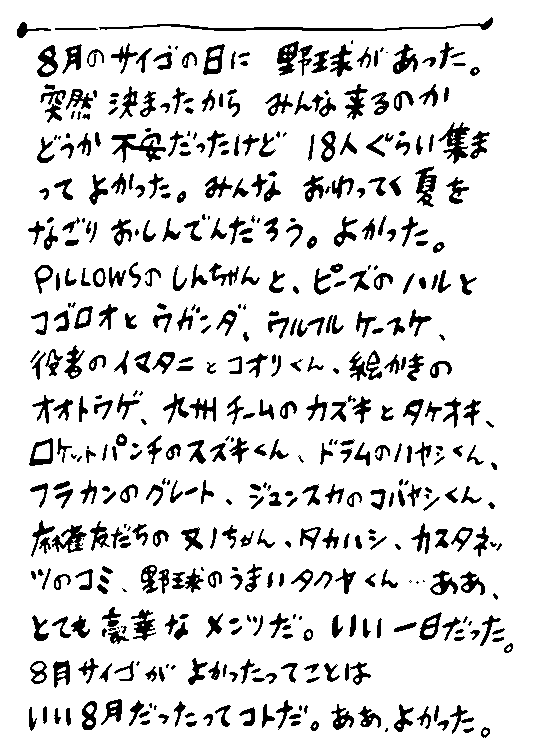 8月のサイゴの日に 野球があった。
突然 決まったから みんな来るのか
どうか 不安だったけど 18人ぐらい集ま
ってよかった。みんな おわってく夏を
なごりおしんでんだろう。よかった。
PILLOWSのしんちゃんと、ピーズのハルと
コゴロオと ウガンダ、ウルフルケースケ、
役者のイマタニとコオリくん、絵かきの
オオトウゲ、九州チームのカズキとタケオキ、
ロケットパンチのスズキくん、ドラムのハヤシくん、
フラカンのグレート、ジュンスカのコバヤシくん、
麻雀友だちの ヌノちゃん、タカハシ、カスタネッ
ツのコミ、野球のうまいタクヤくん…ああ、
とても豪華な メンツだ。いい一日だった。
8月サイゴが よかったってことは
いい8月だったってコトだ。ああ、よかった。